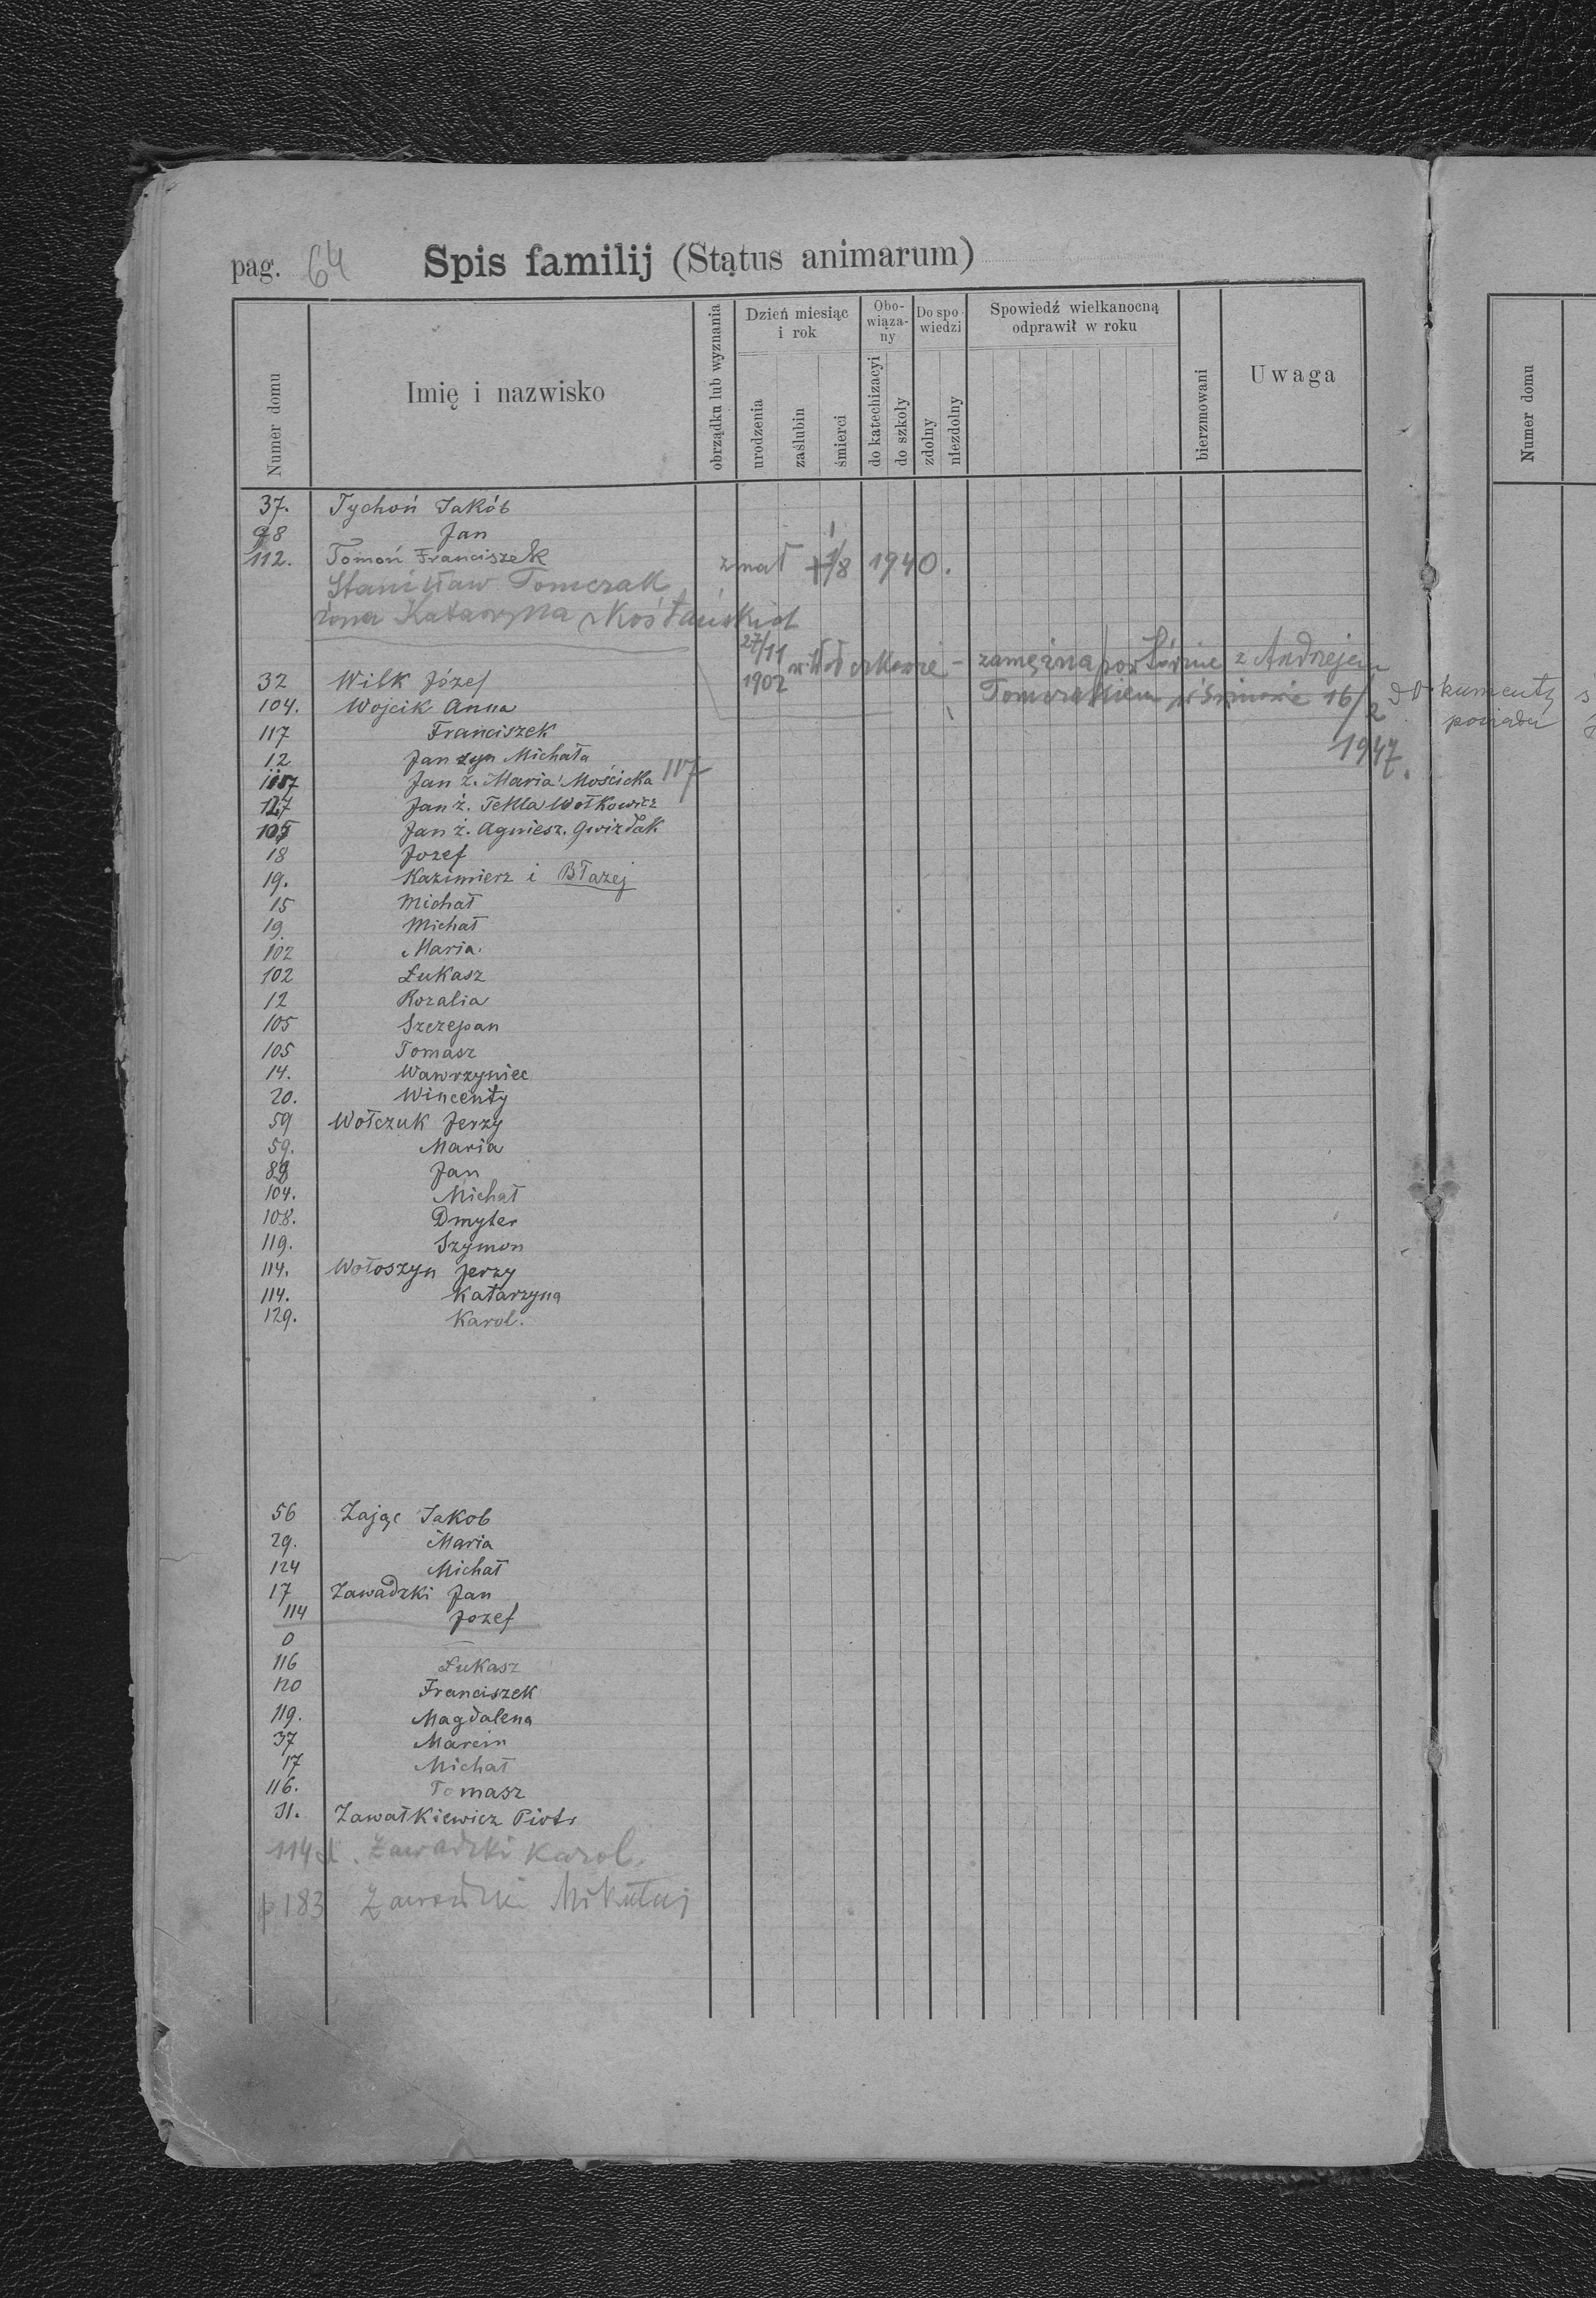 pag. 64 Spis familij (Stątus animarum)
Numer domu
Imię i nazwisko
obrządku lub wyznania
Dzień miesiąc i rok
urodzenia
zaślubin
śmierci
Obo-wiąza-ny
do katechizacyi
do szkoły
Do spo-wiedzi
zdolny
niezdolny
Spowiedź wielkanocną odprawił w roku
bierzmowani
Uwaga
Numer domu
37. Tychoń Jakób
98 Jan
112. Tomoń Franciszek
Stanisław Tomczak zmał 1/8 1940.
żona Katarzyna
27/11 1902 zamężna powtórnie z Andrzejem
32 Wilk Józef
Tomczakiem 16/2 1947.
dokumenty
posiada
104. Wojcik Anna
117 Franciszek
12 Jan syn Michała
117 Jan ż. Maria Mościcka 117
127 Jan ż. Tekla Wołkowicz
105 Jan ż. Agniesz. Gwizdak
18 Jozef
19. Kazimierz i Błażej
15 Michał
19. Michał
102 Maria.
102 Łukasz
12 Rozalia
105 Szczepan
105 Tomasz
14. Wawrzyniec
20. Wincenty
59 Wołczuk Jerzy
59. Maria
Jan
104. Michał
108. Dmyter
119. Szymon
114. Wołoszyn Jerzy
114. Katarzyna
129. Karol.
56 Zając Jakob
29. Maria
124 Michał
17 Zawadzki Jan
114 Jozef
0
116 Łukasz
120 Franciszek
119. Magdalena
37 Marcin
17 Michał
116. Tomasz
31. Zawałkiewicz Piotr
114 Zawadzki Karol.
p 183 Zawadzki Mikołaj